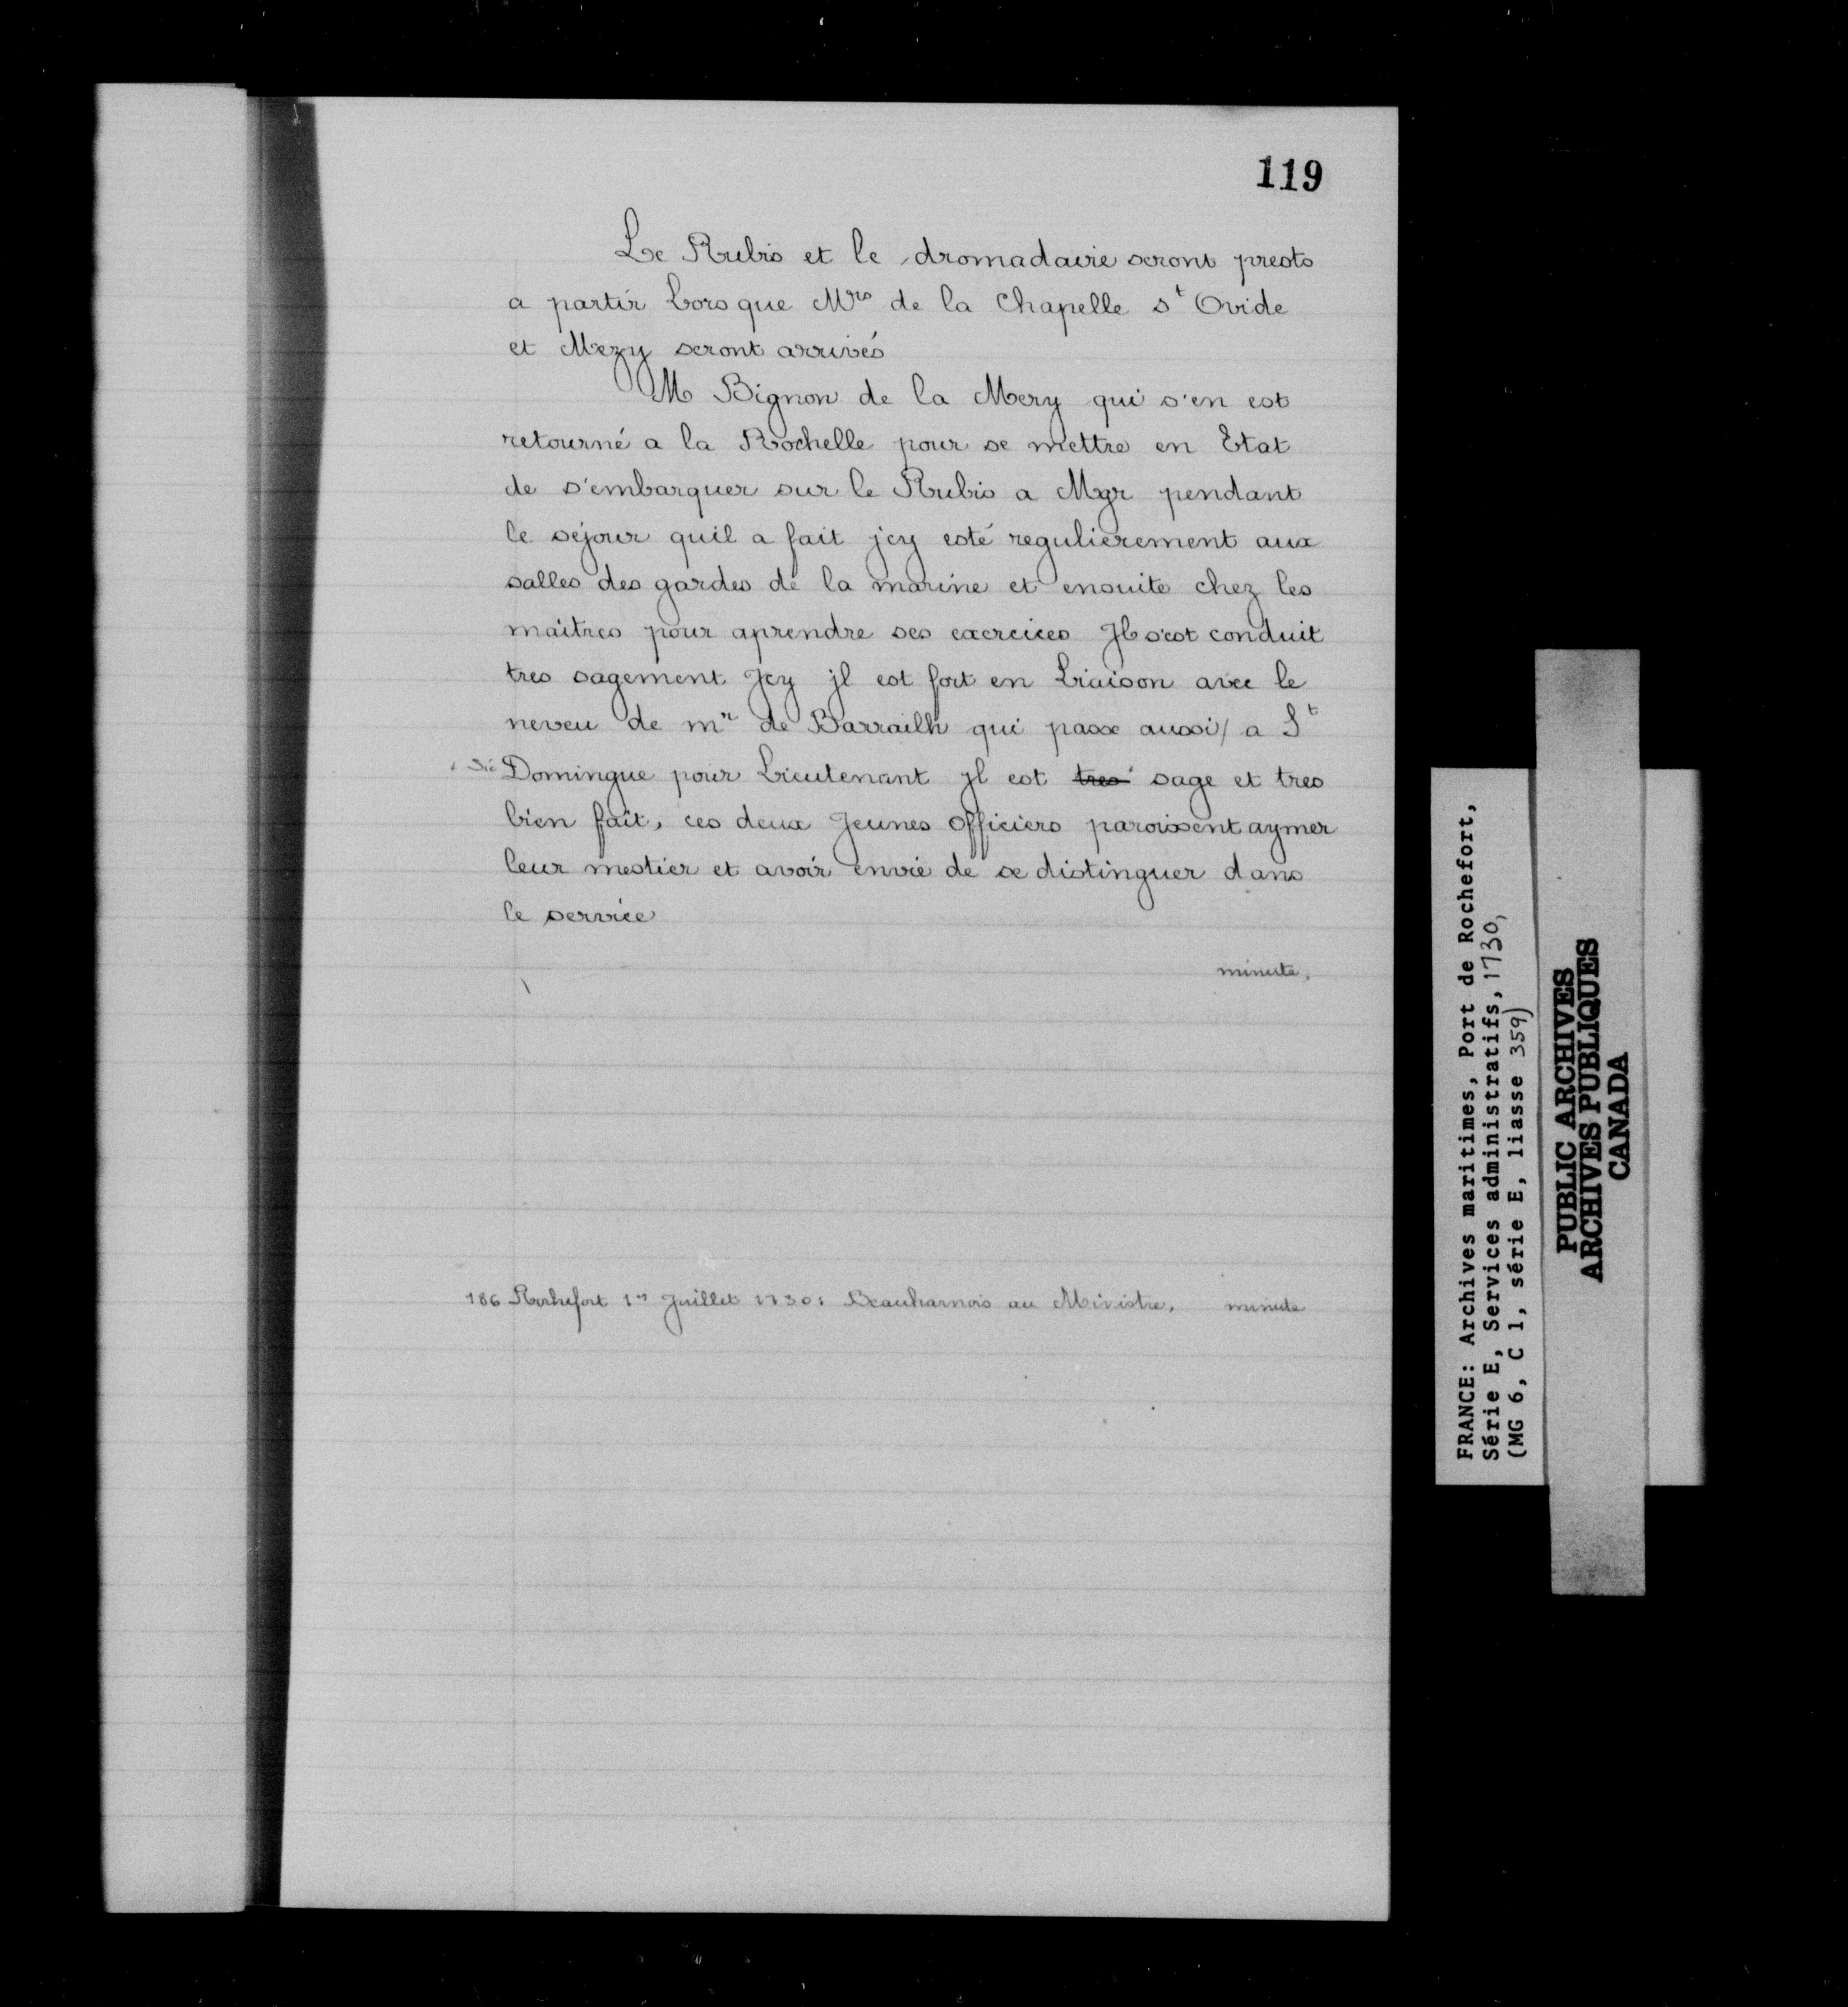 119
Le Rubis et le dromadaire seront prests
a partir Lors que Mrs de la Chapelle st Ovide
et Mezy seront arrivés
M Bignon de la Mery qui s'en est
retourné a la Rochelle pour se mettre en Etat
de s'embarquer sur le Rubis a Mgr pendant
le séjour quil a fait jcy esté regulierement aux
salles des gardes de la marine et ensuite chez les
maîtres pour aprendre ses exercices Jl s'est conduit
tres sagement Jcy jl est fort en Liaison avec le
neveu de mr de Barrailh qui passe aussi/ a St
sic Domingue pour Lieutenant jl est tres sage et tres
bien fait, ces deux Jeunes officiers paroissent aymer
leur mestier et avoir envie de se distinguer dans
le service
minute.
186 Rochefort 1er Juillet 1730: Beauharnois au Ministre. minute
FRANCE: Archives maritimes, Port de Rochefort,
Série E, Services administratifs, 1730,
(MG 6, C 1, série E, liasse 359)
PUBLIC ARCHIVES
ARCHIVES PUBLIQUES
CANADA